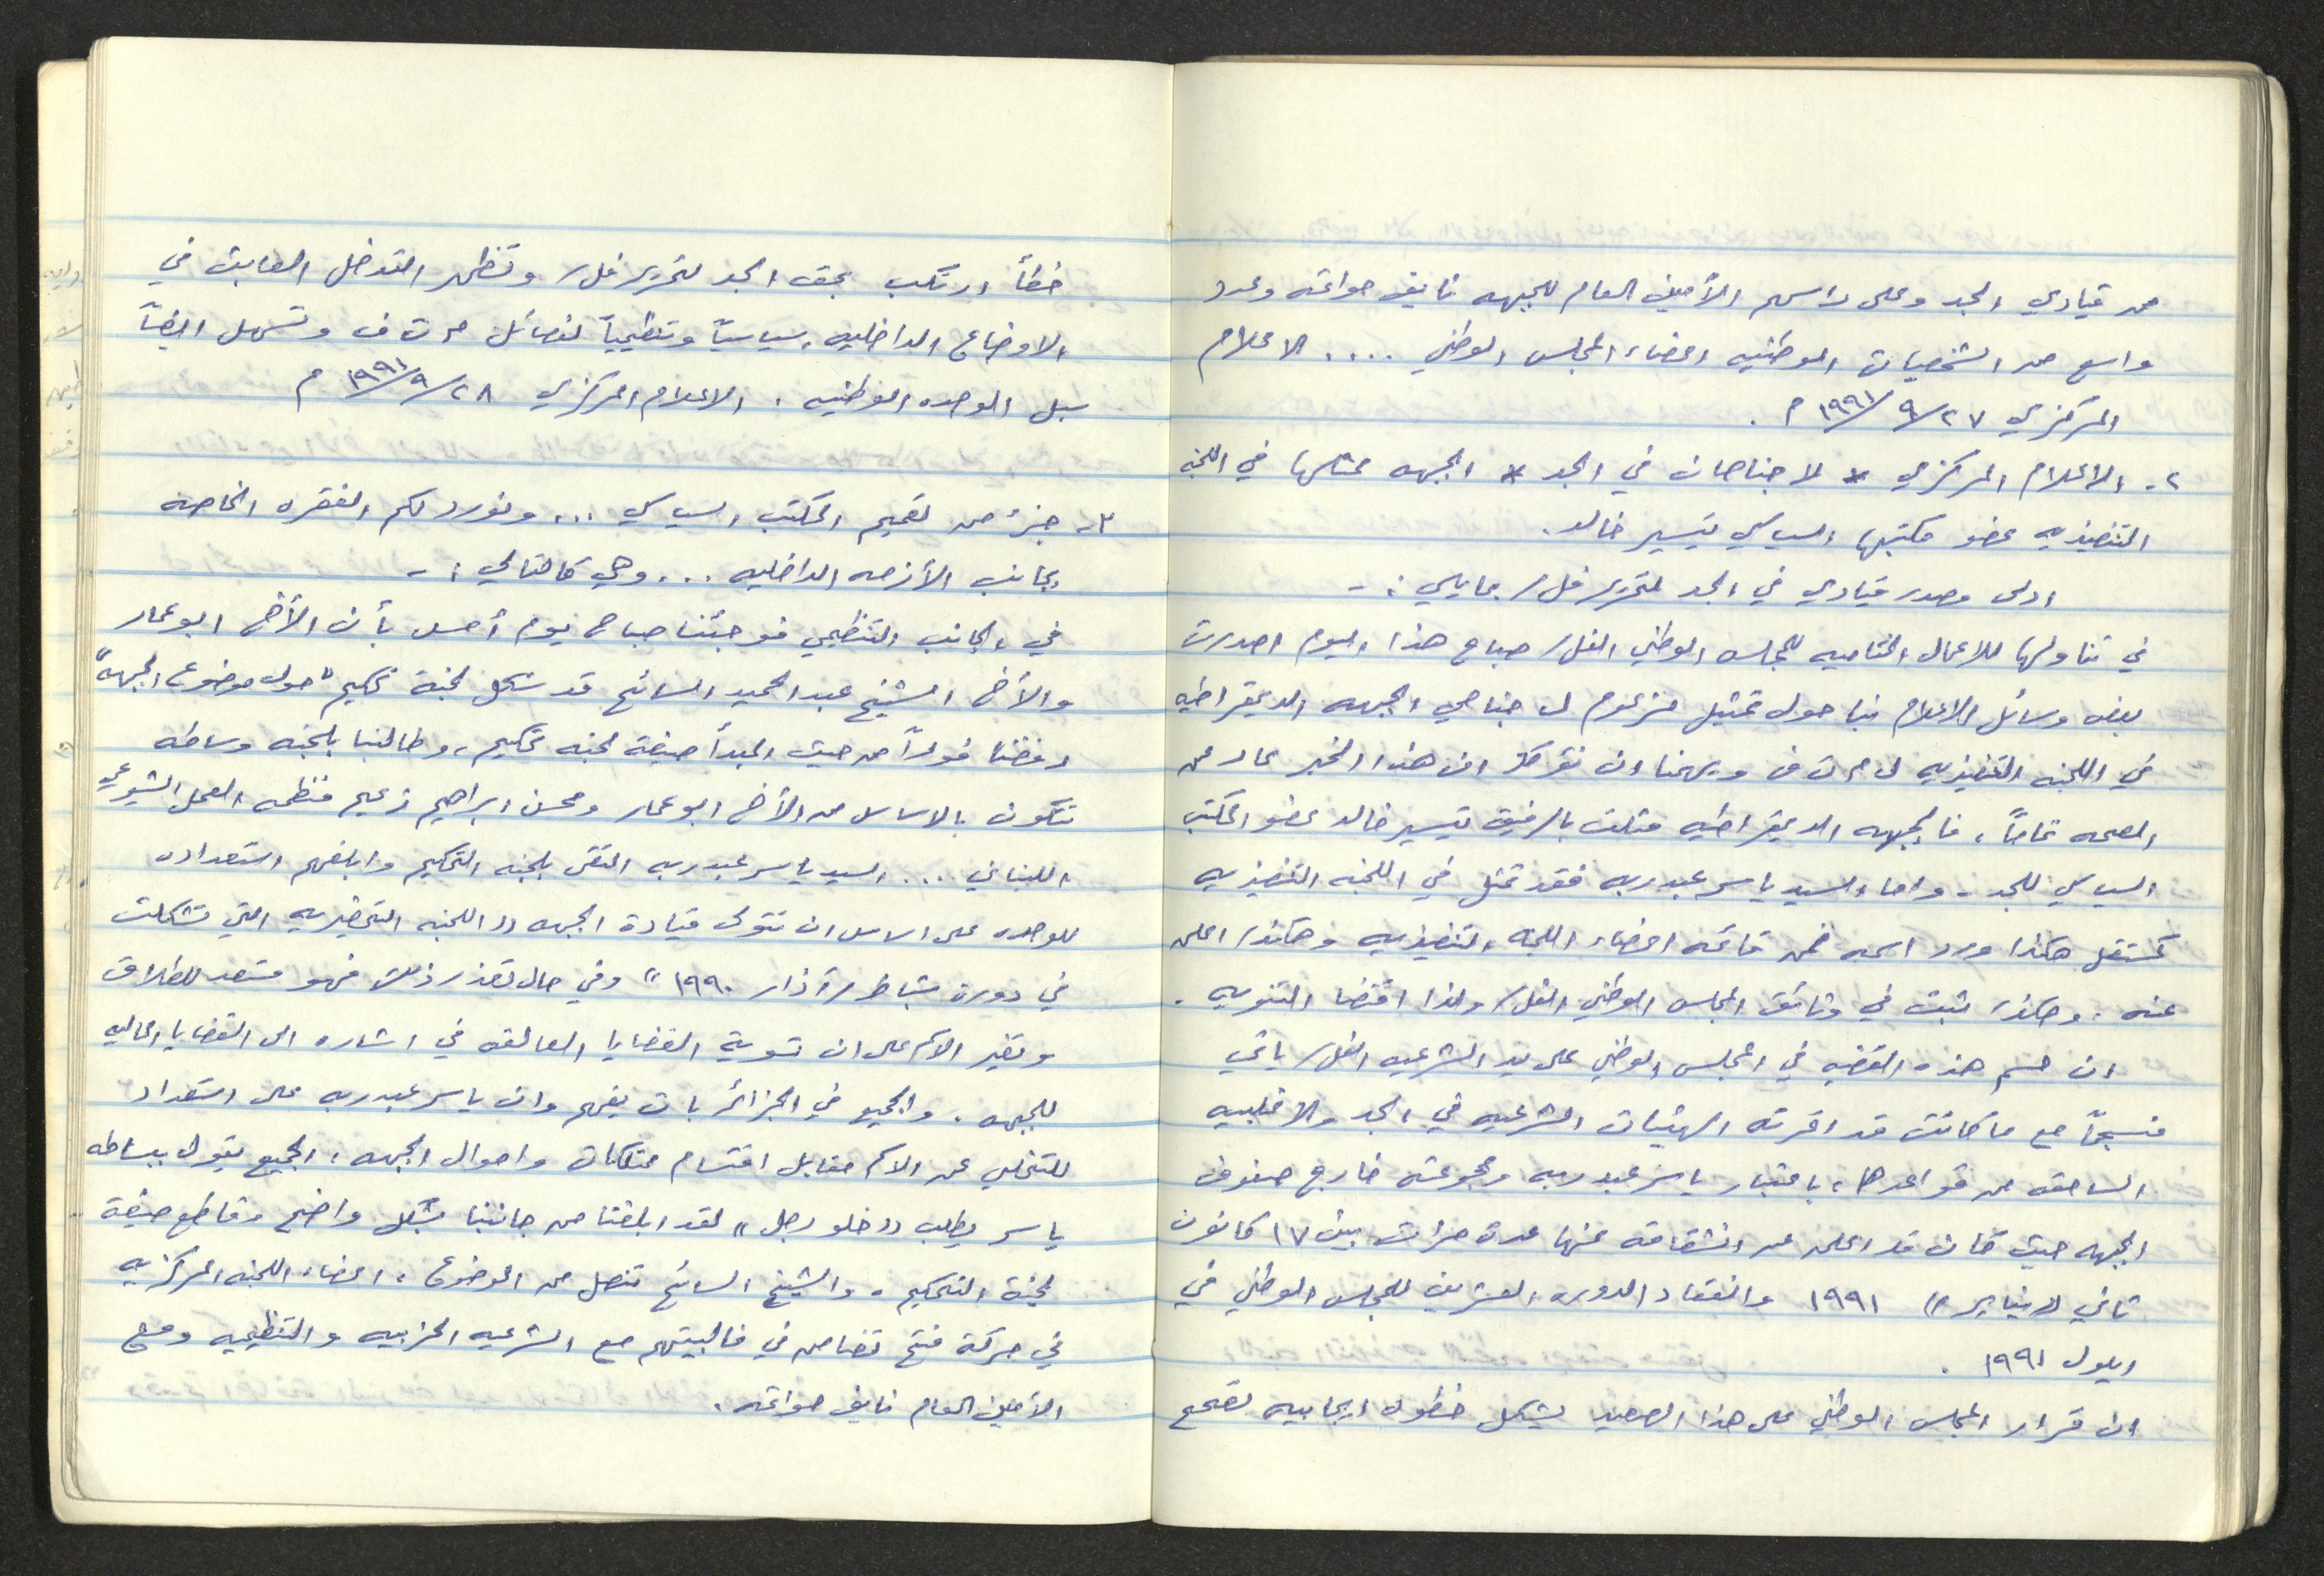 من قيادي الجد وعلى رأسهم الأمين العام للجبهه نايف حواتمه وعدد
واسع من الشخصيات الوطنيه اعضاء المجلس الوطني .... الاعلام
المركزي ٢٧/٩/١٩٩١ م .
٢ - الاعلام المركزي * لا جناحان في الجد * الجبهه ممثلها في اللجنه
التنفيذيه عضو مكتبها السياسي تيسير خالد .
ادلى مصدر قيادي في الجد لتحرير فل/ بمايلي : -
في تناولها للاعمال الختاميه للمجلس الوطني الفل/ صباح هذا اليوم اصدرت
بعض وسائل الاعلام نبا حول تمثيل مزعوم ل جناحي الجبهه الديمقراطيه
في اللجنه التنفيذيه ل م ت ف ويهمنا ان نؤكد ان هذا الخبر عار عن
الصحه تماماً ، فالجبهه الديمقراطيه مثلت بالرفيق تيسير خالد عضو المكتب
السياسي للجد - واما السيد ياسر عبدربه فقد تمثل في اللجنه التنفيذيه
كمستقل هكذا ورد اسمه ضمن قائمه اعضاء اللجنه التنفيذيه وهكذا اعلن
عنه ، وهكذا ثبت في وثائق المجلس الوطني الفل/ ولذا اقتضا التنويه .
ان حسم هذه القضيه في المجلس الوطني على يد الشرعيه الفل/ ياتي
منسجماً مع ما كانت قد اقرته الهيئات الشرعيه في الجد والاغلبيه
الساحقه من قواعدها ، باعتبار ياسر عبدربه ومجموعته خارج صفوف
الجبهه حيث كان قد اعلن عن انشقاقه عنها عدة مرات بين ١٧ كانون
ثاني (( يناير )) ١٩٩١ وانعقاد الدوره العشرين للمجلس الوطني في
ايلول ١٩٩١ .
ان قرار المجلس الوطني على هذا الصعيد يشكل خطوه ايجابيه تصحح
خطأ ارتكب بحق الجد لتحرير فل/ وتظهر التدخل العابث في
الاوضاع الداخليه سياسياً وتنظيمياً لفصائل م ت ف وتسهل ايضاً
سبل الوحده الوطنيه . الاعلام المركزي ٢٨/٩/١٩٩١ م
٣ - جزء من تعميم المكتب السياسي ... ونورد لكم الفقره الخاصه
بجانب الأزمه الداخليه ... وهي كالتالي : -
في الجانب التنظيمي فوجئنا صباح يوم أمس بأن الأخ ابو عمار
والأخ الشيخ عبدالحميد السائح قد شكل لجنة تحكيم " حول موضوع الجبهه "
رفضنا فوراً من حيث المبدأ صيغة لجنه تحكيم ، وطالبنا بلجنه وساطه
تتكون بالاساس من الأخ ابو عمار ومحسن ابراهيم زعيم منظمه العمل الشيوعي
اللبناني ... السيد ياسر عبدربه التقى بلجنه التحكيم وابلغهم استعداده
للوحده على اساس ان تتولى قيادة الجبهه (( اللجنه التحضيريه التي تشكلت
في دورة شباط / آذار ١٩٩٠ )) وفي حال تعذر ذلك فهو مستعد للطلاق
وتغير الاسم على ان تسوية القضايا العالقه في اشاره الى القضايا الماليه
للجبهه . والجميع في الجزائر بات يفهم وان ياسر عبدربه على استعداد
للتخلي عن الاسم مقابل اقتسام ممتلكات واموال الجبهه ، الجميع يقول ببساطه
ياسر يطلب (( خلو رجل )) لقد ابلغنا من جانبنا بشكل واضح وقاطع صيغة
لجنة التحكيم . والشيخ السائح تنصل من الموضوع ، اعضاء اللجنه المركزيه
في حركة فتح تضامن في غالبيتهم مع الشرعيه الحزبيه والتنظيميه ومع
الأمين العام نايف حواتمه .